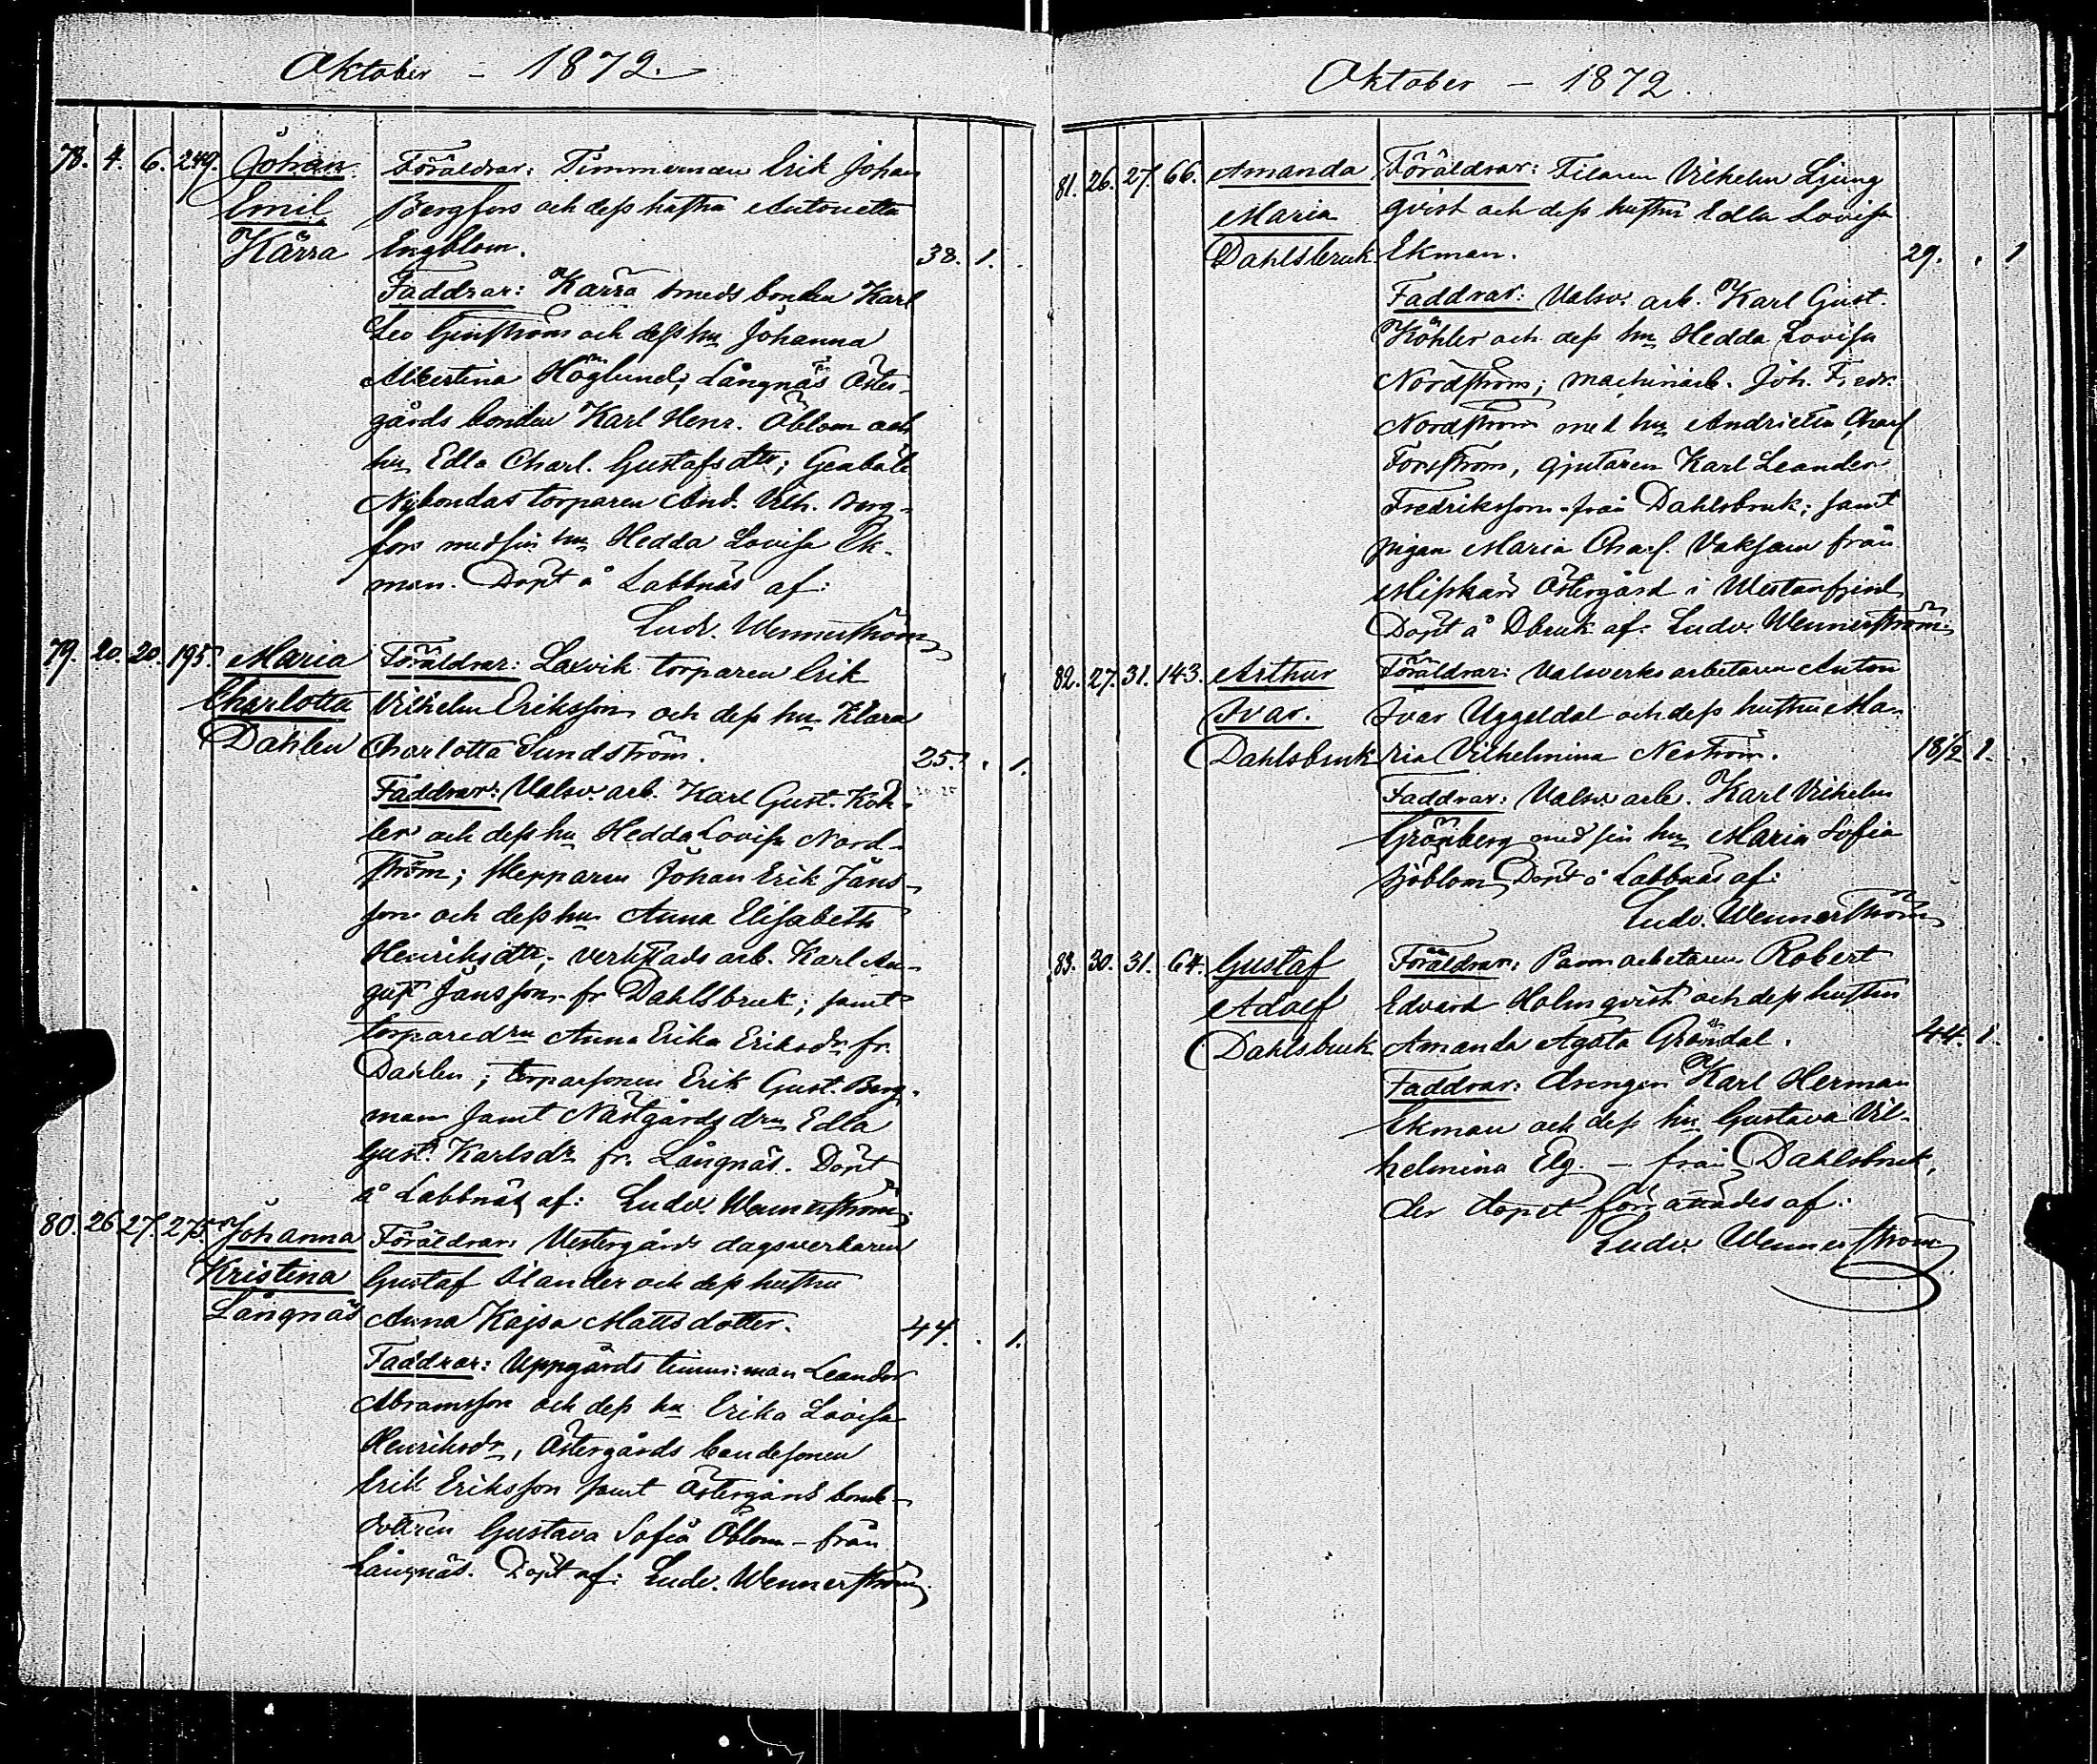 Oktober - 1872.
78. 4. 6. 249. Johan Föräldrar: Timmerman Erik Johan
Emil Bergfors och dess hustru Antonetta
Kärra Engblom. 38. 1.
Faddrar: Kärra smeds bonden Karl
Leo Ginström och dess hu Johanna
Albertina Höglund; Långnäs Öster-
gårds bonden Karl Henr. Öblom och
hu Edla Charl. Gustafsdtr; Genböle
Nybondas torparen And. Vilh. Berg-
fors med sin hu Hedda Lovisa Ek-
man. Döpt å Labbnäs af:
Ludv. Wennerström
79. 20. 20. 195. Maria Föräldrar: Laxvik torparen Erik
Charlotta Vilhelm Eriksson och dess hu Klara
Dahlen Charlotta Sundström. 25. . 1.
Faddrar: Valsv. arb. Karl Gust. Köh-
ler och dess hu Hedda Lovisa Nord-
ström; Johan Erik Jans-
son och dess hu Anna Elisabeth
Henriksdtr; verkstads arb. Karl Au-
gust Jansson fr Dahlsbruk; samt
torparedrn Anna Erika Eriksdr fr.
Dahlen; torparsonen Erik Gust. Berg-
man samt Nästgårds drn Edla
Gust. Karlsdr fr. Långnäs. Döpt
å Labbnäs af: Ludv. Wennerström
80. 26 27. 275. Johanna Föräldrar: Vestergårds dagsverkaren
Kristina Gustaf Ölander och dess hustru
Långnäs Anna Kajsa Mattsdotter. 44. . 1.
Faddrar: Uppgårds timm:man Leander
Abramsson och dess hu Erika Lovisa
Henriksdr, Östergårds bondesonen
Erik Eriksson samt Östergård bond-
Gustava Sofia Öblom - från
Långnäs. Döpt af: Ludv. Wennerström.
Oktober - 1872.
81. 26. 27. 66. Amanda Föräldrar: Filaren Vilhelm Ljung
Maria qvist och dess hustru Edla Lovisa
Dahlsbruk. Ekman. 29. . 1
Faddrar: Valsv. arb. Karl Gust.
Köhler och dess hu Hedda Lovisa
Nordström; machinarb. Joh. Fredr.
Nordström med hu Charl
Forsström, gjutaren Karl Leander
Fredriksson från Dahlsbruk; samt
pigan Maria Charl. från
Misskär Östergård i Westanfjerd
Döpt å Dbruk af: Ludv. Wennerström.
82. 27. 31. 143. Arthur Föräldrar: Valsverks arbetaren Anton
Ivar. Ivar Uggeldal och dess hustru Ma-
Dahlsbruk ria Vilhelmina Neström. 18½ 1.
Faddrar: Valsv. arb. Karl Vilhelm
Grönberg med sin hu Maria Sofia
Sjöblom Döpt å Labbnäs af:
Ludv. Wennerström
83. 30. 31. 64. Gustaf Föräldrar: Pann arbetaren Robert
Adolf Edvard Holmqvist och dess hustru
Dahlsbruk Amanda Agata Gröndal. 44. 1.
Faddrar: drengen Karl Herman
Ekman och dess hu Gustava Vil-
helmina Elg. - från Dahlsbruk,
der dopet förrättades af:
Ludv. Wennerström